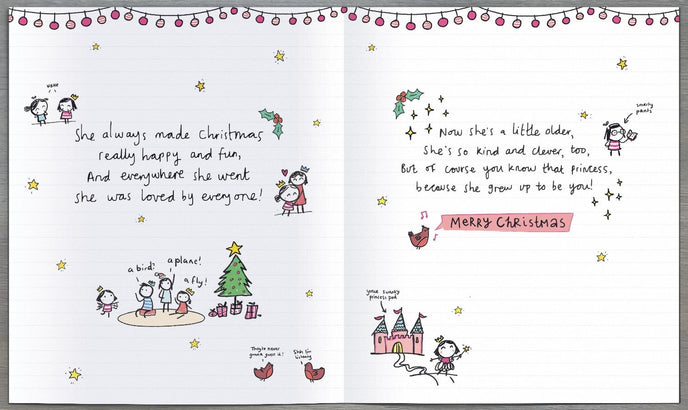 She always made Christmas
really happy and fun,
And everywhere she went
she was loved by everyone!
a bird?
a plane!
a fly!
They're never
gonna guess it!
Now she's a little older,
She's so kind and clever, too,
But of course you know that princess,
because she grew up to be you!
smarty
pants
MERRY CHRISTMAS
your swanky
princess pad